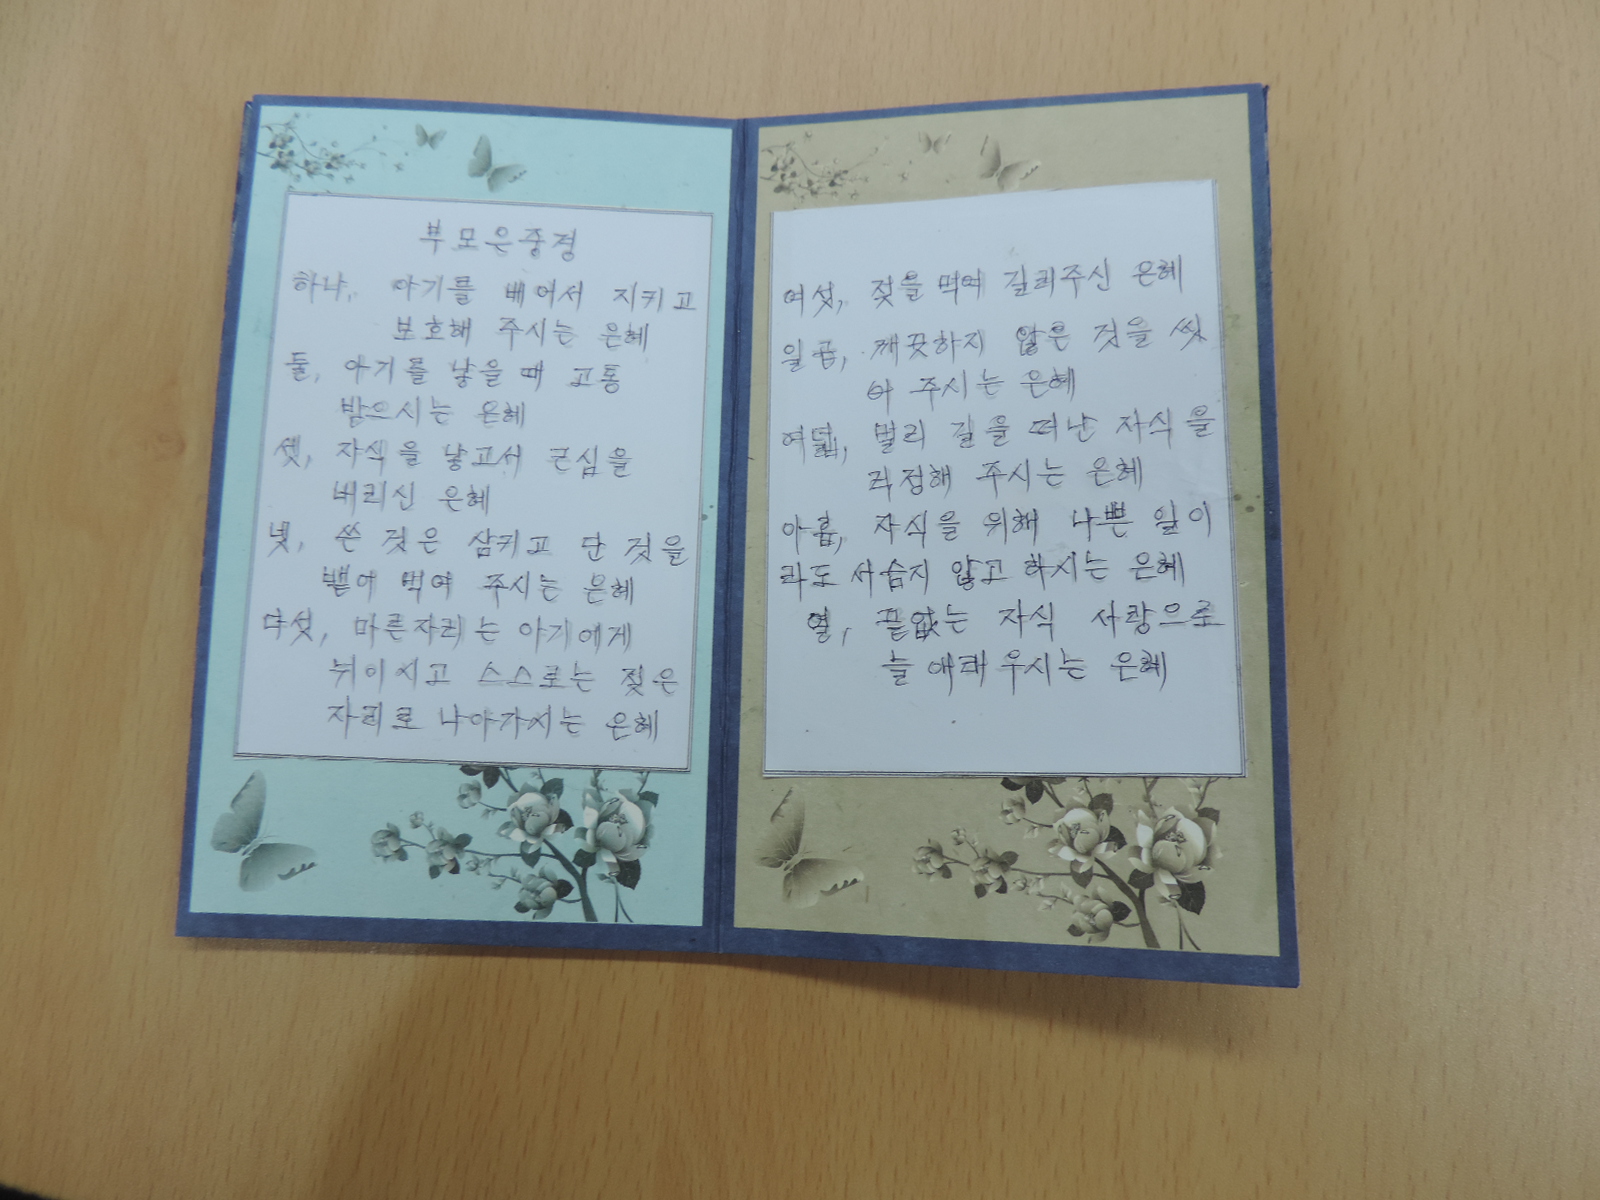 부모은중경
하나, 아기를 배어서 지키고
보호해 주시는 은혜
둘, 아기를 낳을 때 고통
받으시는 은혜
셋, 자식을 낳고서 근심을
버리신 은혜
넷, 쓴 것은 삼키고 단 것을
뱉어 먹여 주시는 은혜
다섯, 마른자리는 아기에게
뉘이시고 스스로는 젖은
자리로 나아가시는 은혜
여섯, 젖을 먹여 길러주신 은혜
일곱, 깨끗하지 않은 것을 씻
어 주시는 은혜
여덟, 멀리 길을 떠난 자식을
걱정해 주시는 은혜
아홉, 자식을 위해 나쁜 일이
라도 서슴지 않고 하시는 은혜
열, 끝없는 자식 사랑으로
늘 애태우시는 은혜